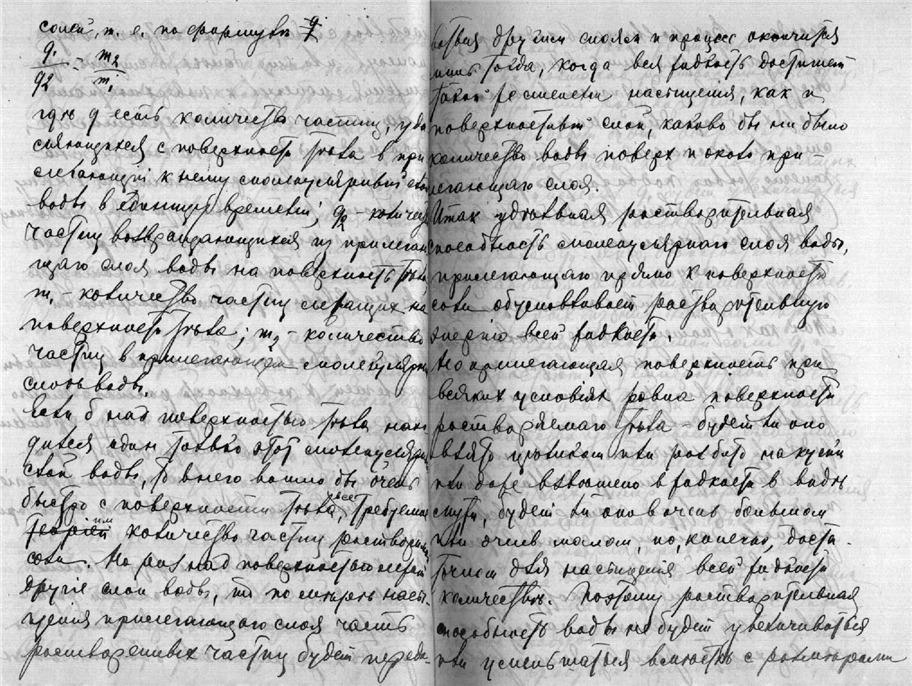 солей, т. е. по формуле
q₁/q₂ = m₂/m₁
где q есть количество частиц,
с поверхности тела в при-
легающий к нему молекулярный слой
воды в единицу времени; q₂ - количес
частиц возвращающихся из прилегаю
щаго слоя воды на поверхность тела
m₁ - количество частиц лежащих на
поверхности тела; m₂ - количество
частиц в прилегающем молекулярн
слое воды.
Если б над поверхностью тела нахо
дился один только этот молекулярн
слой воды, то в него вошло бы очень
быстро с поверхности тела все требуемое
количество частиц растворим
соли. Но раз над поверхностью лежат
другие слои воды, то по мере насы-
щения прилегающаго слоя часть
растворенных частиц будет переда-
ваться другим слоям и процесс окончится
лишь тогда, когда вся жидкость достигнет
такой же степени насыщения, как и
поверхностный слой, каково бы ни было
количество воды поверх и около при-
легающаго слоя.
Итак удельная растворительная
способность молекулярнаго слоя воды,
прилегающаго прямо к поверхности
соли обусловливает растворительную
энергию всей жидкости.
Но прилегающая поверхность при
всяких условиях равна поверхности
растворяемаго тела - будет ли оно
взято целиком или разбито на куски
или даже взвешено в жидкости в виде
мути, будет ли оно в очень большом
или очень малом, но, конечно, доста-
точном для насыщения всей жидкости
количестве. Поэтому растворительная
способность воды не будет увеличиваться
или уменьшаться вместе с размерами